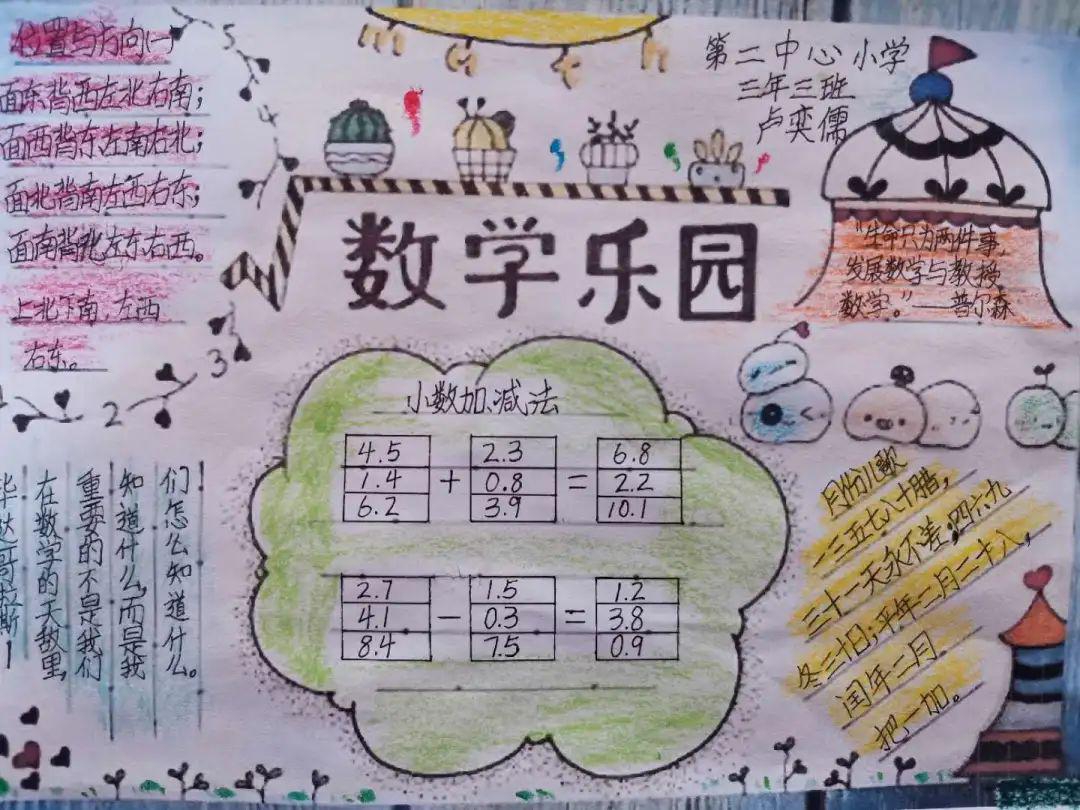 math
第二中心小学
三年三班
卢奕儒
位置与方向(一)
面东背西左北右南;
面西背东左南右北;
面北背南左西右东;
面南背北左东右西。
上北下南,左西
右东。
5
4
3
2
数学乐园
"生命只为两件事,
发展数学与教授
数学。"——普尔森
小数加减法
4.5 2.3 6.8
1.4 + 0.8 = 2.2
6.2 3.9 10.1
2.7 1.5 1.2
4.1 - 0.3 = 3.8
8.4 7.5 0.9
们怎么知道什么。
知道什么,而是我
重要的不是我们
在数学的天敌里,
毕达哥拉斯
月份儿歌
一三五七八十腊,
三十一天永不差;四六九
冬三十日;平年二月二十八,
闰年二月
把一加。